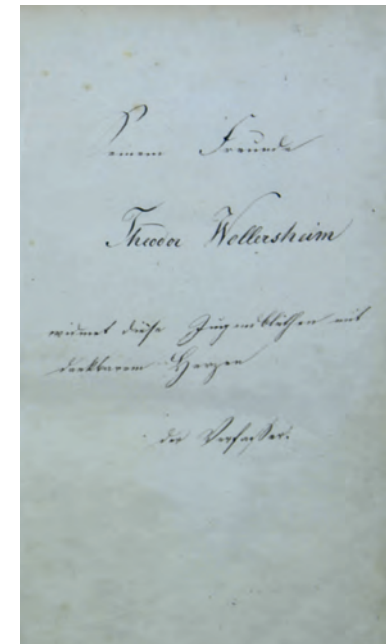 Seinem Freunde
Theodor Wellersheim
widmet diese Jugendblüthen mit
dankbarem Herzen
der Verfasser.